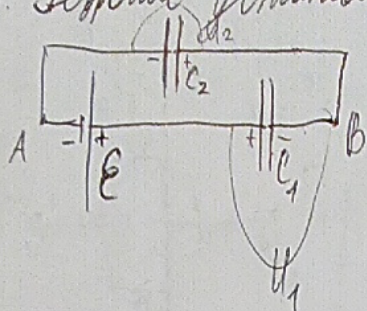 U₂
- +
C₂
A - + + - B
ℰ C₁
U₁